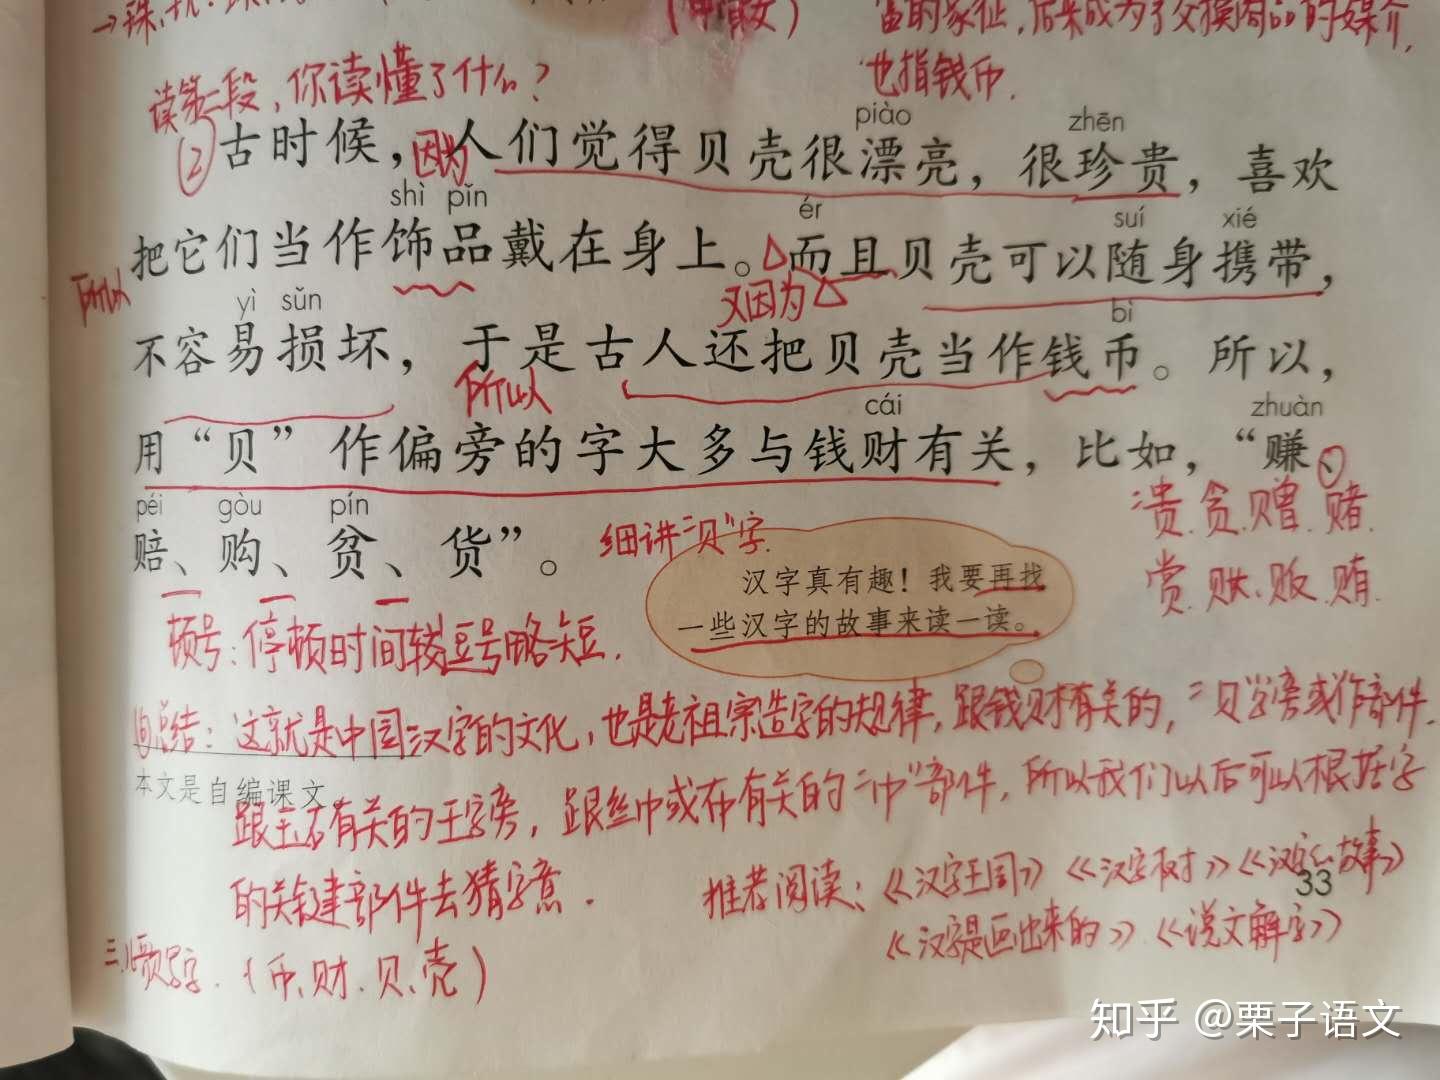 →珠、玩、
富的象征，后来成为了交换商品的媒介，
也指钱币．
读第二段，你读懂了什么？
piào zhēn
②古时候，因为人们觉得贝壳很漂亮，很珍贵，喜欢
shì pǐn ér suí xié
把它们当作饰品戴在身上。而且贝壳可以随身携带，
所以 又因为
yì sǔn bì
不容易损坏，于是古人还把贝壳当作钱币。所以，
所以
cái zhuàn
用“贝”作偏旁的字大多与钱财有关，比如，“赚、
péi gòu pín
赔、购、贫、货”。
贵．贪．赠．赌．
赏．账．贩．贿．
细讲“贝”字．
汉字真有趣！我要再找
一些汉字的故事来读一读。
顿号：停顿时间较逗号略短．
总结：这就是中国汉字的文化，也是老祖宗造字的规律，跟钱财有关的，“贝”字旁或作部件．
本文是自编课文。
跟玉石有关的王字旁，跟丝巾或布有关的“巾”部件．所以我们以后可以根据字
的关键部件去猜字意．
推荐阅读：《汉字王国》《汉字树》《汉字的故事》
33
《汉字是画出来的》《说文解字》
三、儿歌写字．（币、财、贝、壳）
知乎 @栗子语文